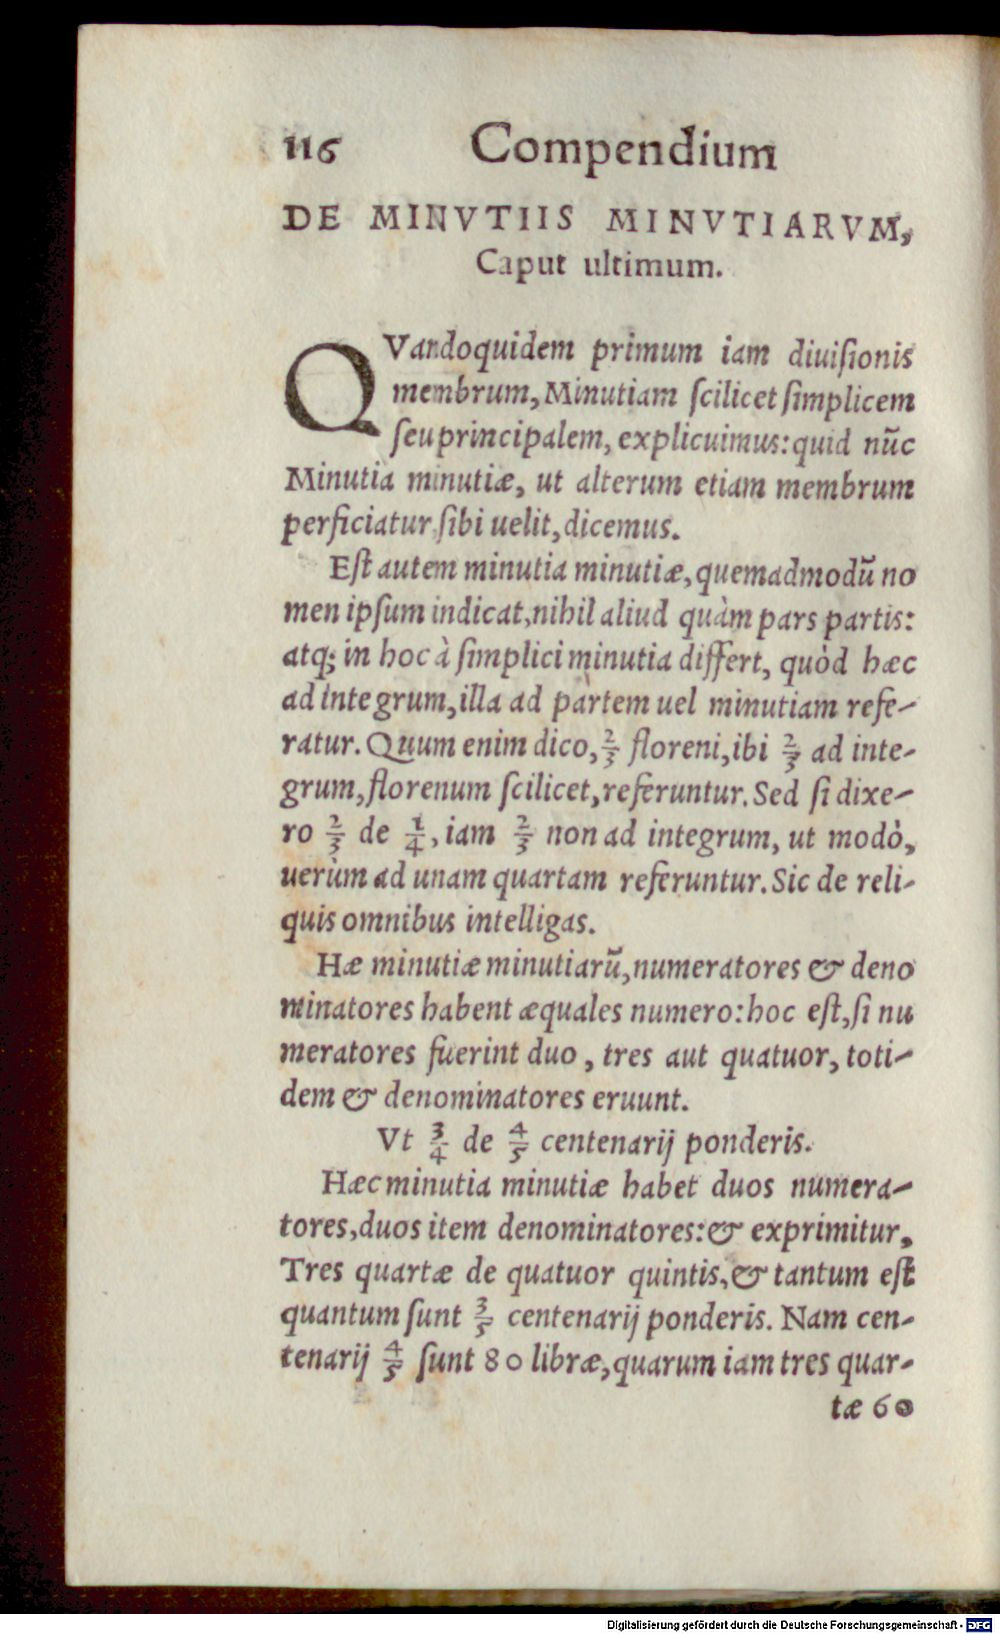 116 Compendium
DE MINVTIIS MINVTIARVM,
Caput ultimum.
QVandoquidem primum iam diuiſionis
membrum, Minutiam ſcilicet ſimplicem
ſeu principalem, explicuimus: quid nūc
Minutia minutiæ, ut alterum etiam membrum
perficiatur ſibi uelit, dicemus.
Eſt autem minutia minutiæ, quemadmodū no
men ipſum indicat, nihil aliud quàm pars partis:
atq; in hoc à ſimplici minutia differt, quòd hæc
ad integrum, illa ad partem uel minutiam refe-
ratur. Quum enim dico, 2/3 floreni, ibi 2/3 ad inte-
grum, florenum ſcilicet, referuntur. Sed ſi dixe-
ro 2/3 de 1/4, iam 2/3 non ad integrum, ut modò,
uerùm ad unam quartam referuntur. Sic de reli-
quis omnibus intelligas.
Hæ minutiæ minutiarū, numeratores & deno
minatores habent æquales numero: hoc eſt, ſi nu
meratores fuerint duo, tres aut quatuor, toti-
dem & denominatores eruunt.
Vt 3/4 de 4/5 centenarij ponderis.
Hæc minutia minutiæ habet duos numera-
tores, duos item denominatores: & exprimitur,
Tres quartæ de quatuor quintis, & tantum eſt
quantum ſunt 3/5 centenarij ponderis. Nam cen-
tenarij 4/5 ſunt 80 libræ, quarum iam tres quar-
tæ 60
Digitalisierung gefördert durch die Deutsche Forschungsgemeinschaft - DFG